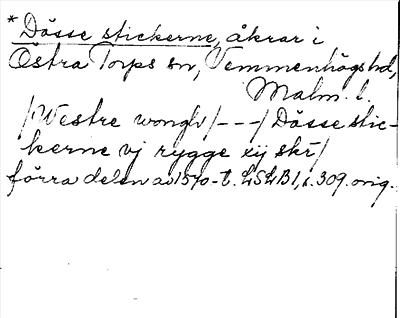 * Dösse stickerne, åkrar i
Östra Torps sn, Vemmenhögs hd,
Malm. l.
/Westre wongh/---/Dösse stic-
kerne vj rygge xij skr/
förra delen av 1570-t. LSLB1, s. 309. orig.